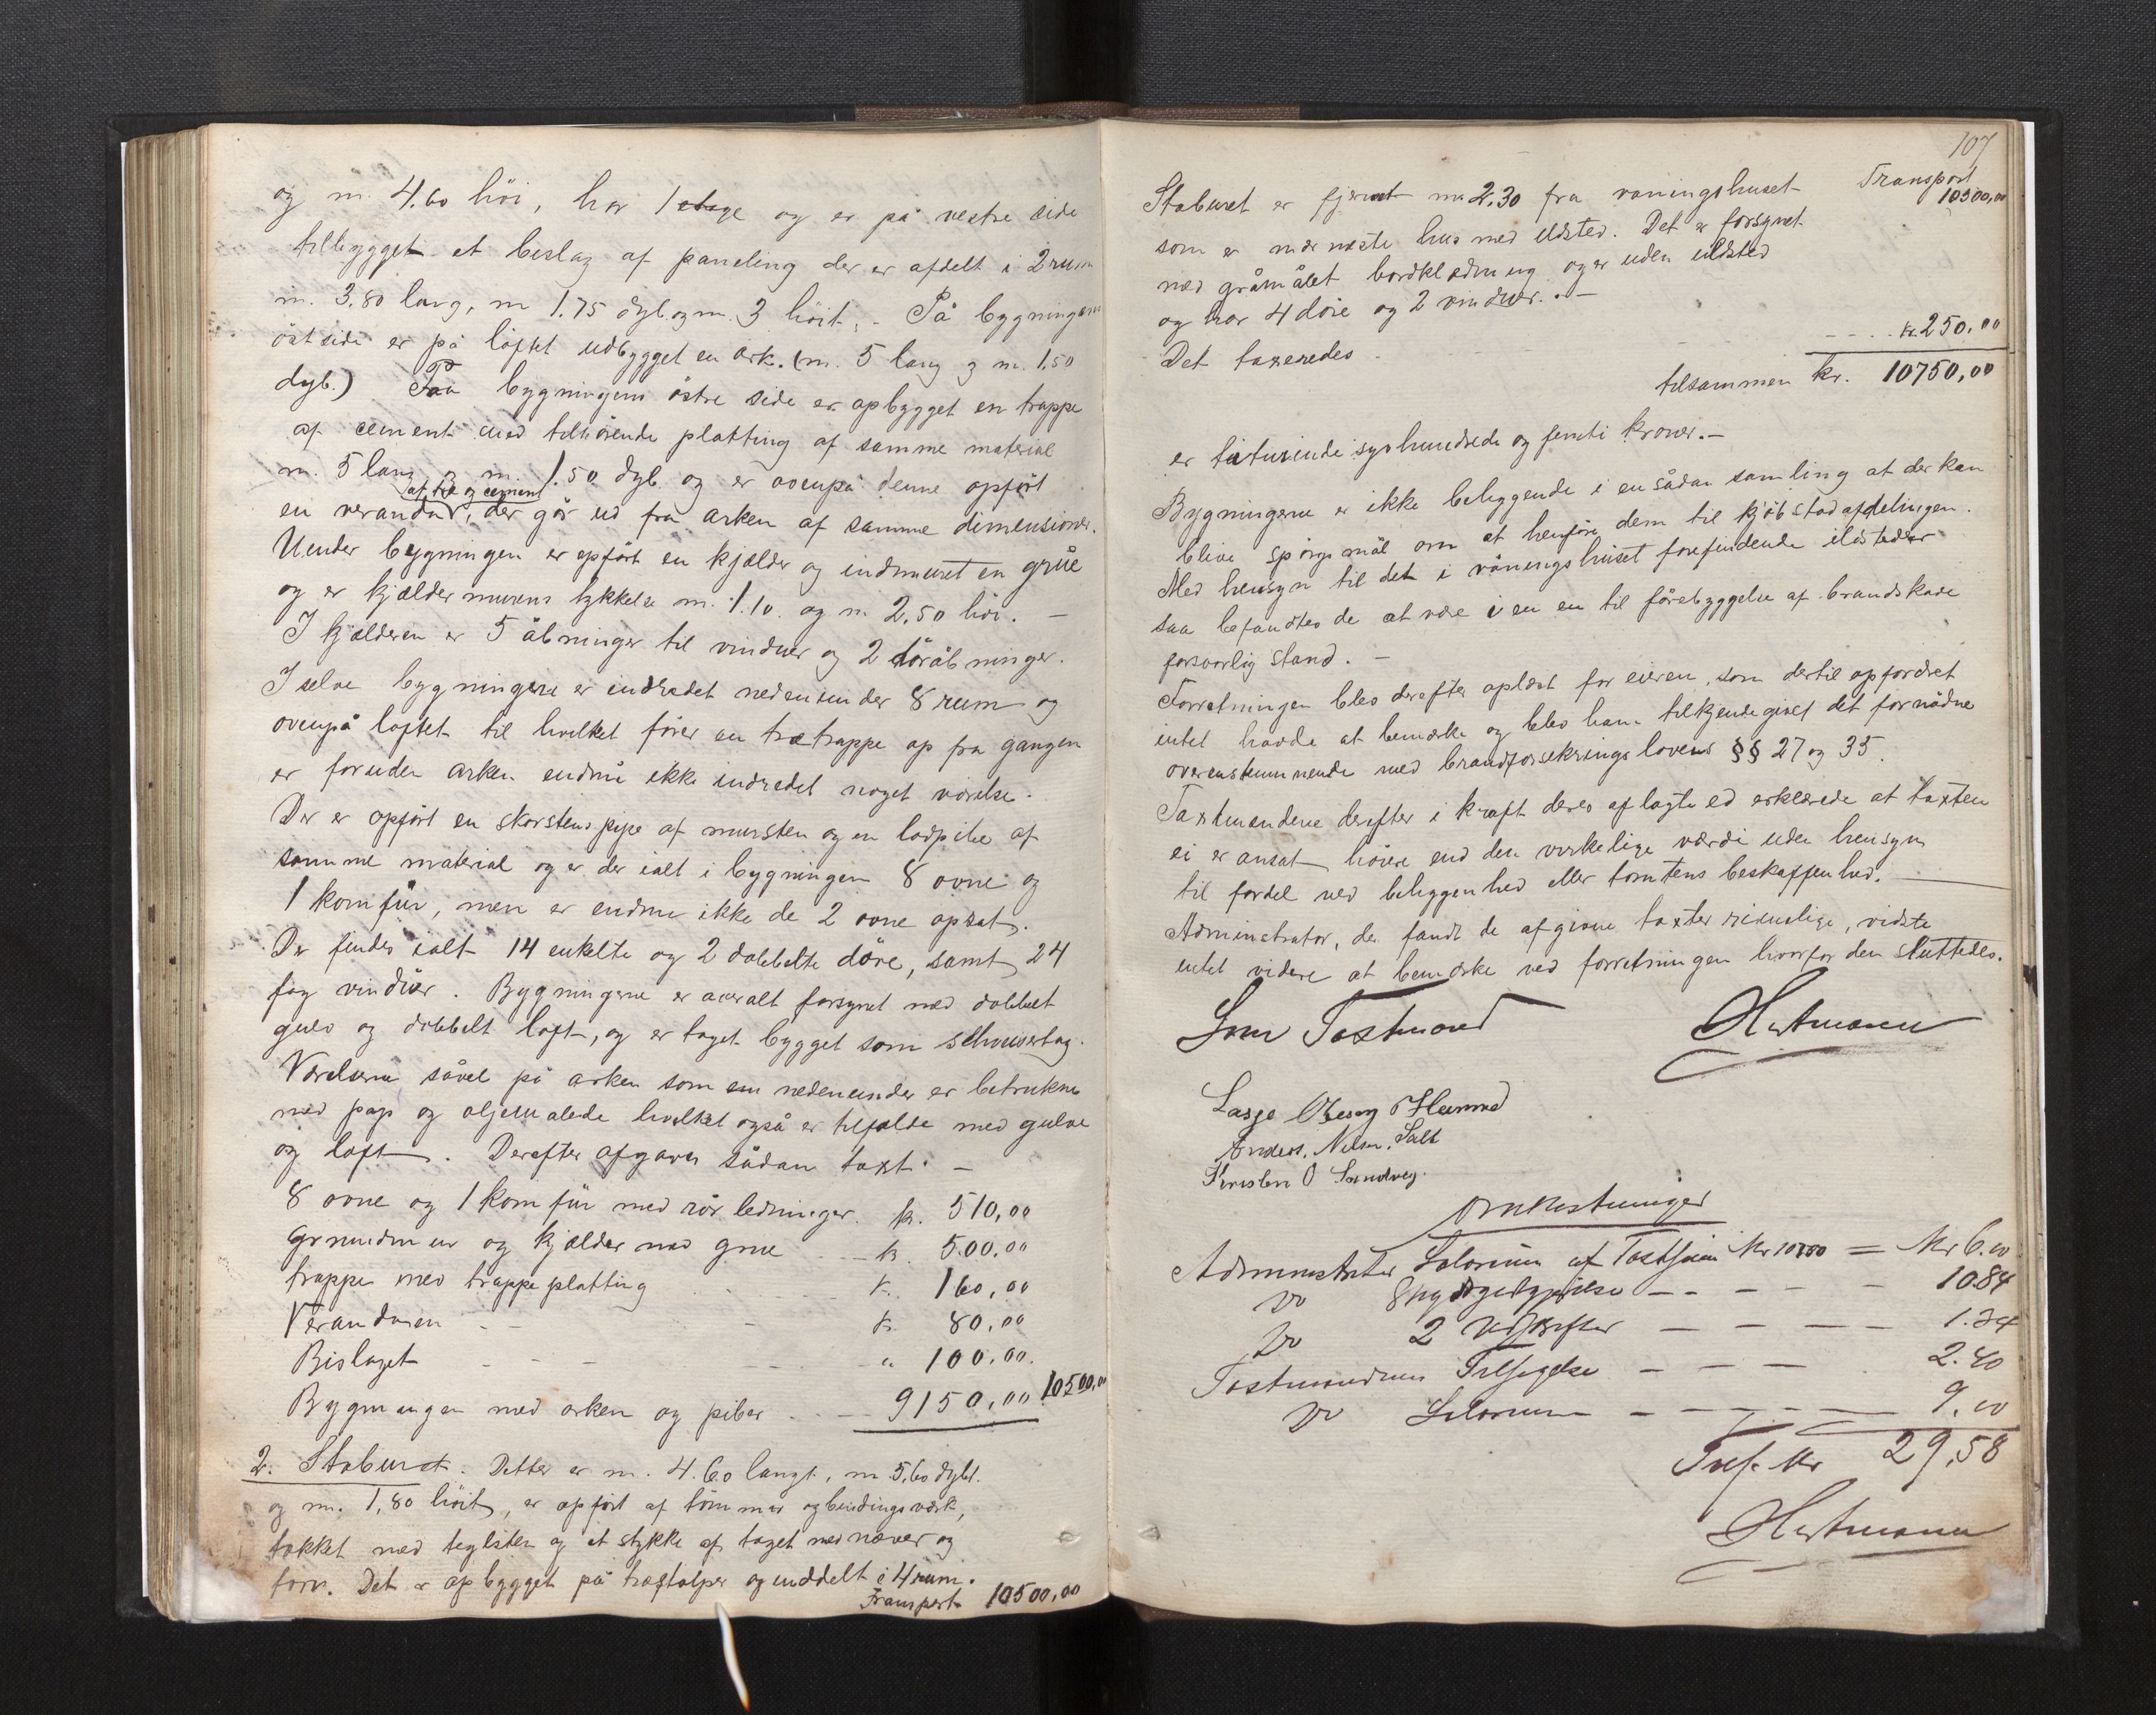 og m. 4.60 höi, har 1 etage og er på vestre side
tilbygget et beslag af paneling der er afdelt i 2 rum
m. 3,80 lang, m 1.75 dyb. og m. 3 höit. - På bygningens
östside er på loftet udbygget en ark. (m. 5 lang og m. 1.50
dyb.) Paa bygningens östre side er opbygget en trappe
af cement med tilhörende platting af samme material
m. 5 lang og m. 1.50 dyb og er ovenpå denne opfört
af træ og cement
en veranda, der går ud fra arken af samme dimensioner.
Under bygningen er opfört en kjælder og indmuret en grue
og er kjældermurens tykkelse m. 1.10. og m 2,50 höi. -
I kjælderen er 5 åbninger til vinduer og 2 döråbninger.
I selve bygningen er indredet nedenunder 8 rum og
ovenpå loftet til hvilket förer en trætrappe op fra gangen
er foruden arken endnu ikke indredet noget værelse.
Der er opfört en skorstenspipe af mursten og en lodpibe af
samme material og er der ialt i bygningen 8 ovne og
1 komfür, men er endnu ikke de 2 ovne opsat.
Der findes ialt 14 enkelte og 2 dobbelte döre, samt 24
fag vinduer. Bygningerne er overalt forsynet med dobbelt
gulv og dobbelt loft, og er taget bygget som schweisertag.
Værelserne såvel på arken som nedenunder er betrukne
med pap og oljemalede hvilket også er tilfælde med gulve
og loft. Derefter afgaves sådan taxt: -
8 ovne og 1 komfür med rörledninger. kr. 510,00
Grundmur og kjælder med grue - kr 500.00
trappe med trappeplatting k. 160,00
Verandaen - - k. 80.00
Bislaget - - - " 100.00.
Bygningen med arken og piber. - 9150,00 10500,00
2. Staburet. Dette er m. 4.60 langt, m 5,60 dybt.
og m. 1,80 höit, er opfört af tömmer og bindingsværk,
tækket med teglsten og et stykke af taget med næver og
torv. Det er opbygget på træstolper og inddelt i 4 rum.
Transport 10500,00
107
Transport
10500,00
Staburet er fjernet m 2.30 fra vaningshuset
som er nærmeste hus med ildsted. Det er forsynet
med gråmålet bordklædning og er uden ildsted
og har 4 döre og 2 vinduer. -
Det taxeredes - - - kr. 250,00
tilsammen kr. 10750,00
er titusinde syvhundrede og femti kroner. -
Bygningerne er ikke beliggende i en sådan samling at der kan
blive spörgsmål om at henföre dem til kjöbstadafdelingen.
Med hensyn til det i våningshuset forefindende ildsteder
saa befandtes de at være i en til forebyggelse af brandskade
forsvarlig stand. -
Forretningen blev derefter oplæst for eieren, som dertil opfordret
intet havde at bemærke og blev ham tilkjendegivet det fornödne
overensstemmende med brandforsikringslovens §§ 27 og 35.
Taxtmændene derefter i kraft deres aflagte ed erklærede at taxten
ei er ansat höiere end den virkelige værdi uden hensyn
til fordel ved beliggenhed eller tomtens beskaffenhed. -
Administrator, der fandt de afgivne taxter rimelige, vidste
intet videre at bemærke ved forretningen hvorfor den sluttedes.
Som Taxtmænd
Hartmann
Lasse
Anders. Nilsen. Salt
O Sandvig.
Omkostninger
Administrator Salarium af Taxtsum Kr 10750 = Kr 6.00
Do Skydsgodtgjörelse - - - - 10.84
Do 2 Udskrifter - - - - 1.34
Taxtmændenes Tilsigelse - - - 2.40
Do Salarium - - - - - 9.00
Tils. Kr 29,58
Hartmann